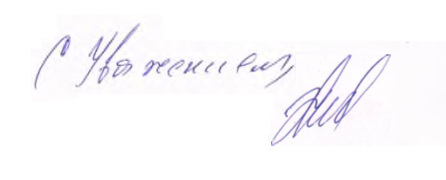 С Уважением,